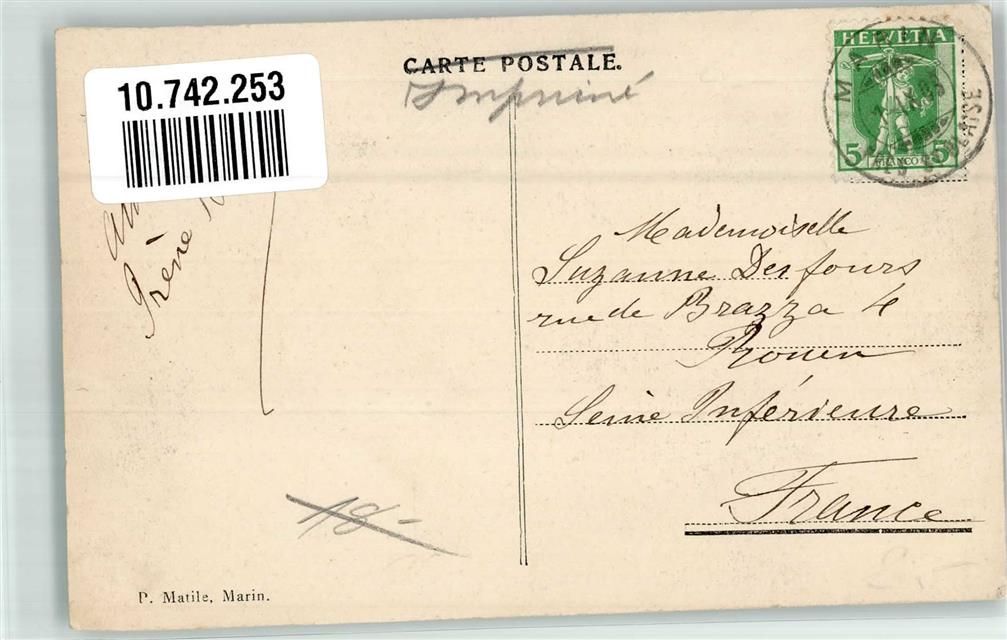 CARTE POSTALE.
Imprimé
10.742.253
HELVETIA
5 FRANCO 5
MARIN
Irène
Mademoiselle
Suzanne Desfours
rue de Brazza 4
Rouen
Seine Inférieure
France
18-
P. Matile, Marin.